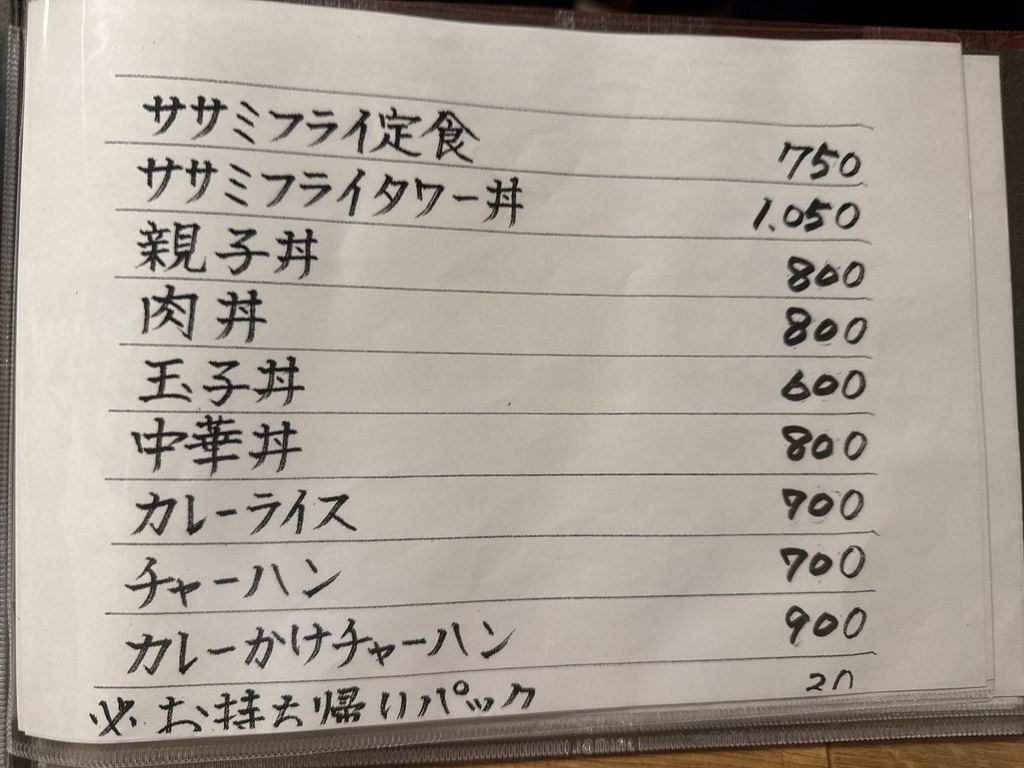 ササミフライ定食 750
ササミフライタワー丼 1.050
親子丼 800
肉丼 800
玉子丼 600
中華丼 800
カレーライス 700
チャーハン 700
カレーかけチャーハン 900
※お持ち帰りパック 20